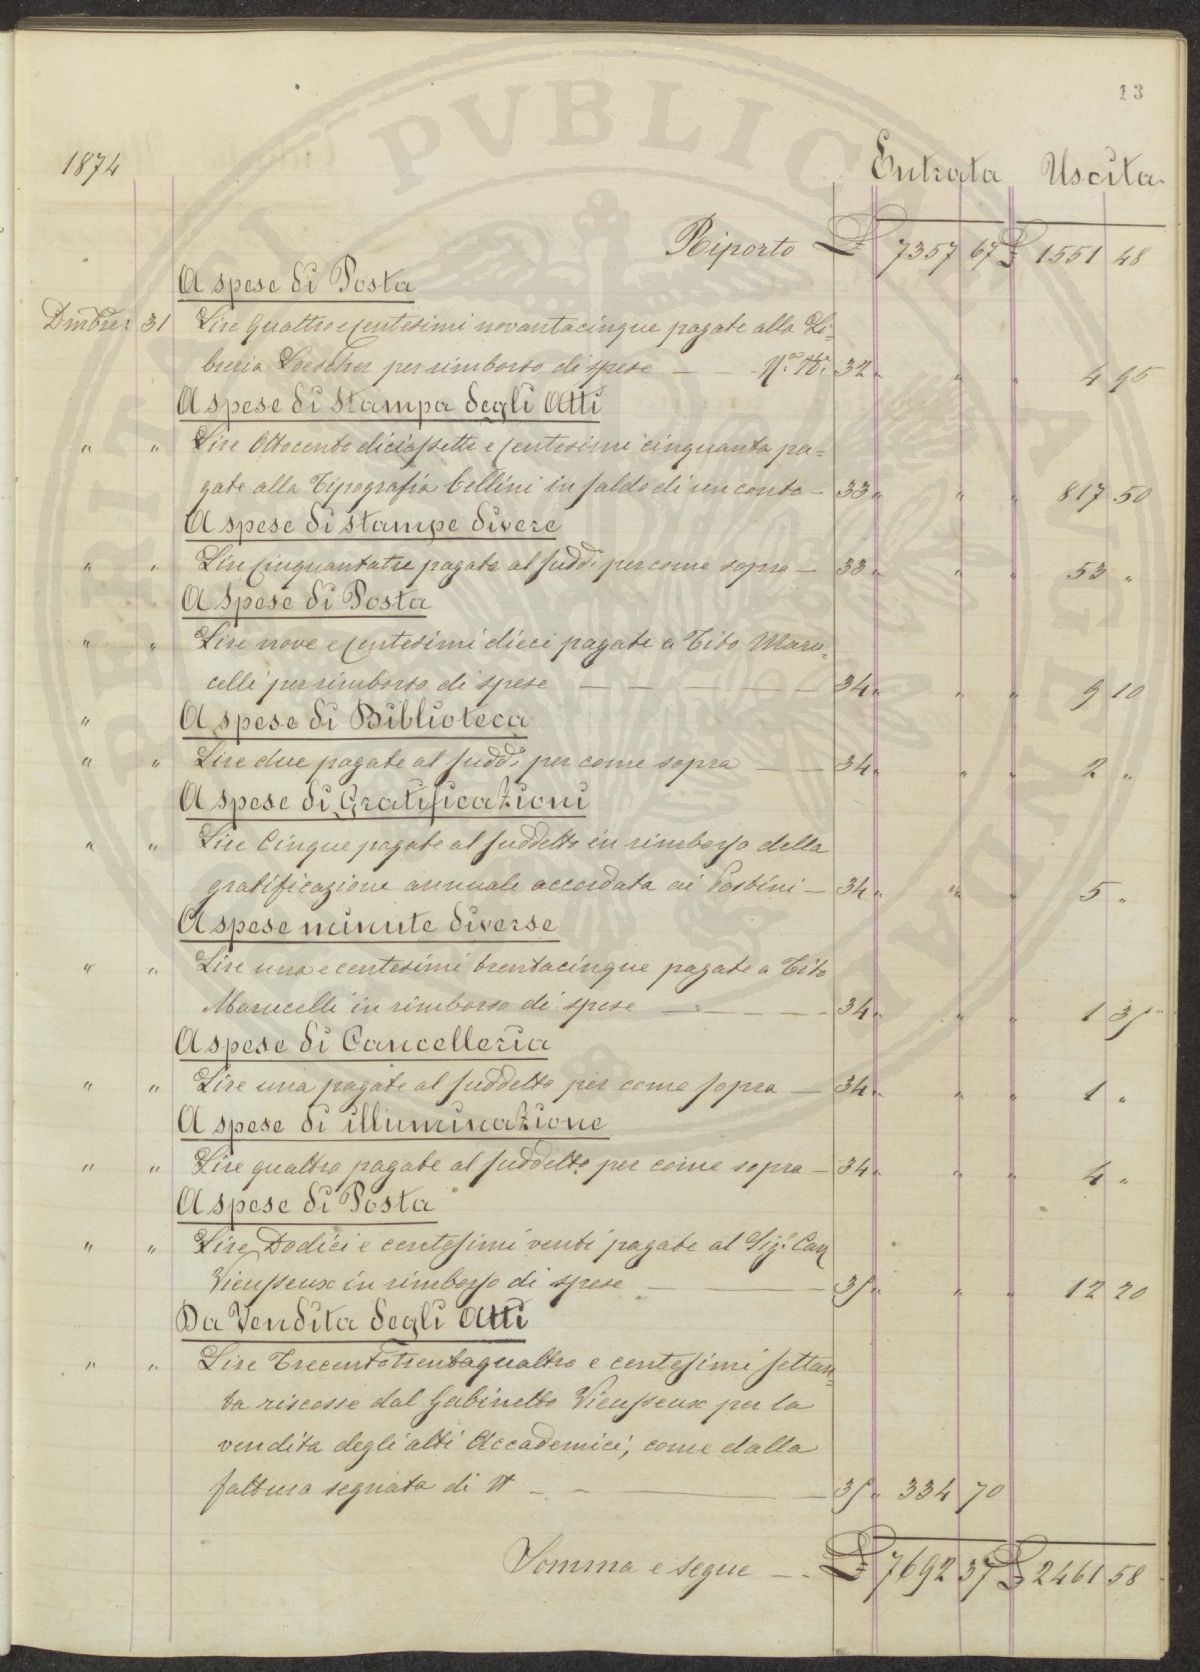 13
1874
Entrata Uscita
Riporto £ 7357 67 £ 1551 48
A spese di Posta
Dmbre: 31 Lire Quattro e centesimi novantacinque pagate alla Li-
breria Loescher per rimborso di spese — — 32 " " " 4 95
A spese di stampa degli Atti
" " Lire Ottocento diciassette e centesimi cinquanta pa=
gate alla Tipografia Cellini in saldo di un conto — 33 " " " 817 50
A spese di stampe divere
" " Lire Cinquantatre pagate al sudd: per come sopra — 33 " " " 53 "
A spese di Posta
" " Lire nove e centesimi dieci pagate a Tito Maru=
celli per rimborso di spese — — — — — 34 " " " 9 10
" A spese di Biblioteca
" " Lire due pagate al sudd: per come sopra — — 34 " " " 2 "
A spese di Gratificazioni
" " Lire Cinque pagate al suddetto in rimborso della
gratificazione annuale accordata ai Postini — 34 " " " 5 "
A spese minute diverse
" " Lire una e centesimi trentacinque pagate a Tito
Marucelli in rimborso di spese — — — — 34 " " " 1 35
A spese di Cancelleria
" " Lire una pagate al suddetto per come sopra — 34 " " " 1 "
A spese di illuminazione
" " Lire quattro pagate al suddetto per come sopra — 34 " " " 4 "
A spese di Posta
" " Lire Dodici e centesimi venti pagate al Sigr Cav
Vieusseux in rimborso di spese — — 35 " " " 12 20
Da Vendita degli Atti
" " Lire Trecentotrentaquattro e centesimi settan=
ta riscosse dal Gabinetto Vieusseux per la
vendita degli atti Accademici, come dalla
fattura segnata di N — — — 35 " 334 70
Somma e segue — . £ 7692 37 £ 2461 58